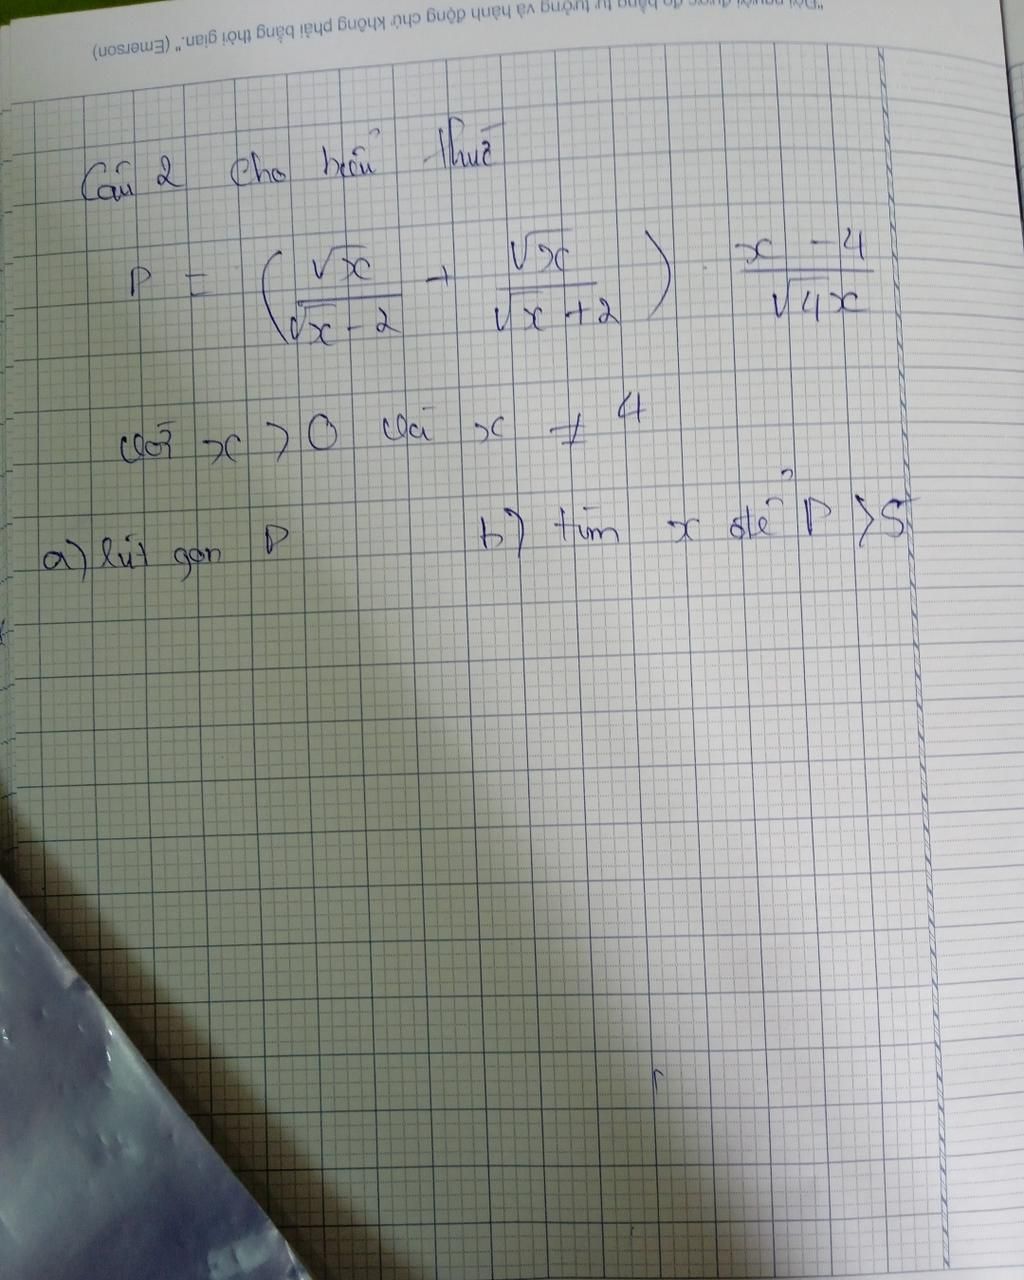 "Đời người được đo bằng tư tưởng và hành động chứ không phải bằng thời gian." (Emerson)
Câu 2 Cho biểu thức
P = (√x/(√x - 2) + √x/(√x + 2)) . (x - 4)/√4x
với x > 0 và x ≠ 4
a) rút gọn P b) tìm x để P > 5